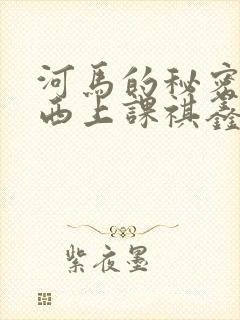 河馬的秘密
西上課祺鑫
紫夜墨